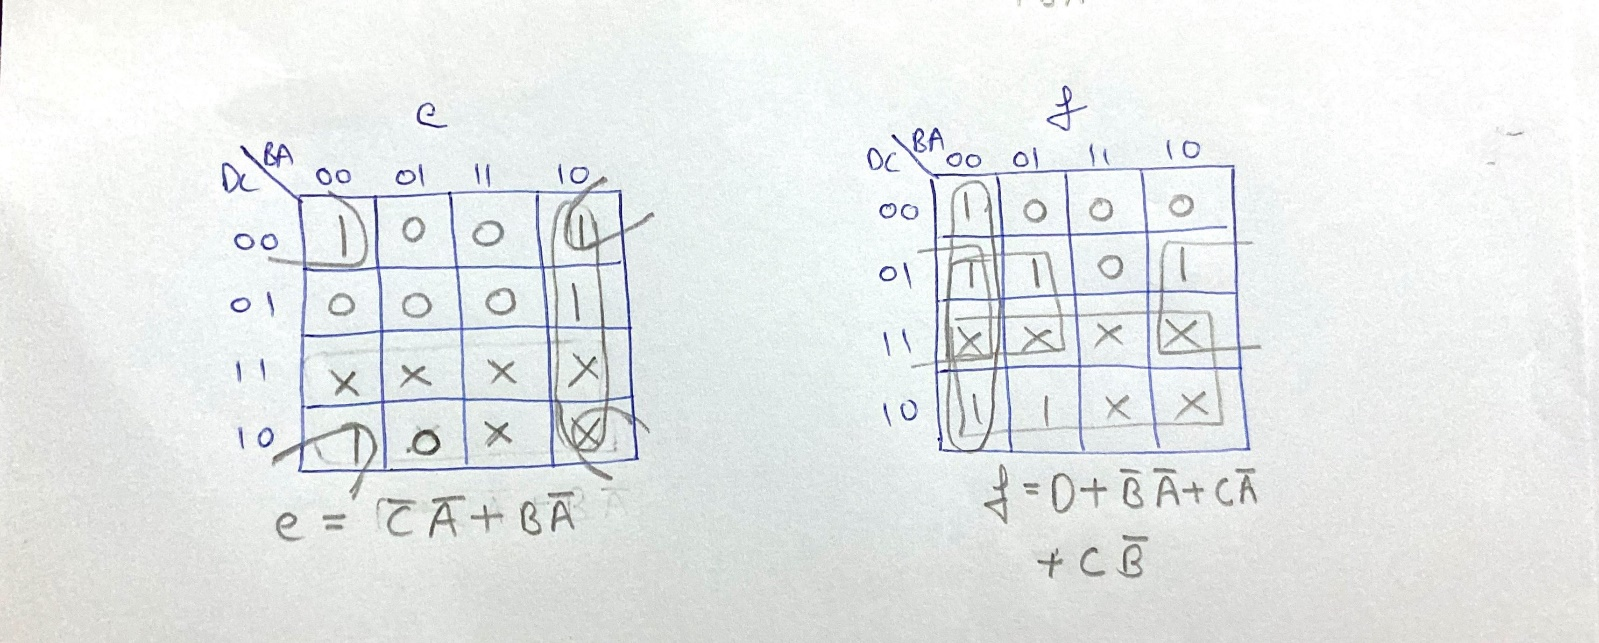 e
DC \ BA 00 01 11 10
00 1 0 0 1
01 0 0 0 1
11 X X X X
10 1 0 X X
e = C̅ A̅ + B A̅
f
DC \ BA 00 01 11 10
00 1 0 0 0
01 1 1 0 1
11 X X X X
10 1 1 X X
f = D + B̅ A̅ + C A̅
+ C B̅